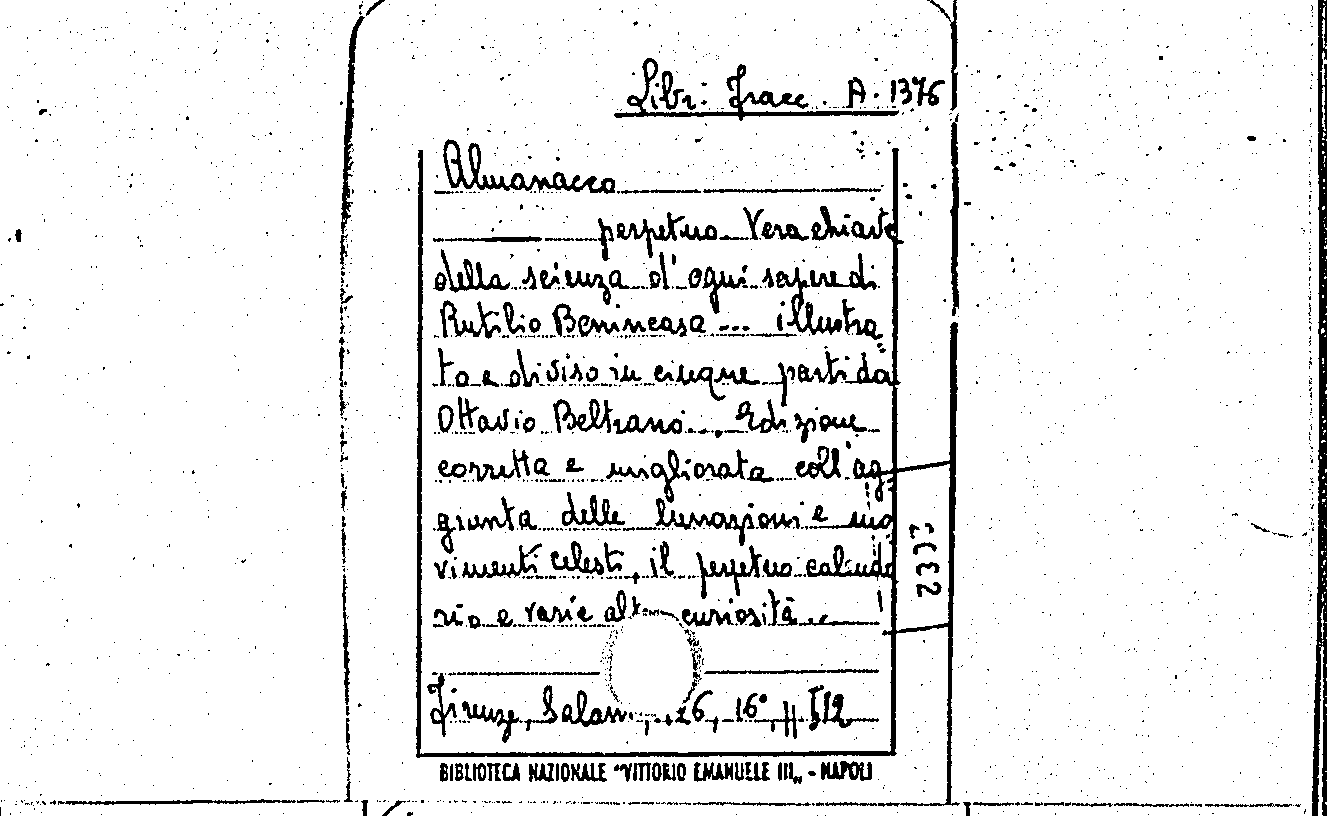 Libr. Fracc. A. 1376
Almanacco
perpetuo Vera chiave
della scienza d'ogni sapere di
Rutilio Benincasa ... illustra
to e diviso in cinque parti da
Ottavio Beltrano ... Edizione
corretta e migliorata coll'ag
giunta delle lunazioni e mo
vimenti celesti, il perpetuo calenda
rio e varie curiosità ...
Firenze, 16°, pp 512
BIBLIOTECA NAZIONALE "VITTORIO EMANUELE III„ - NAPOLI